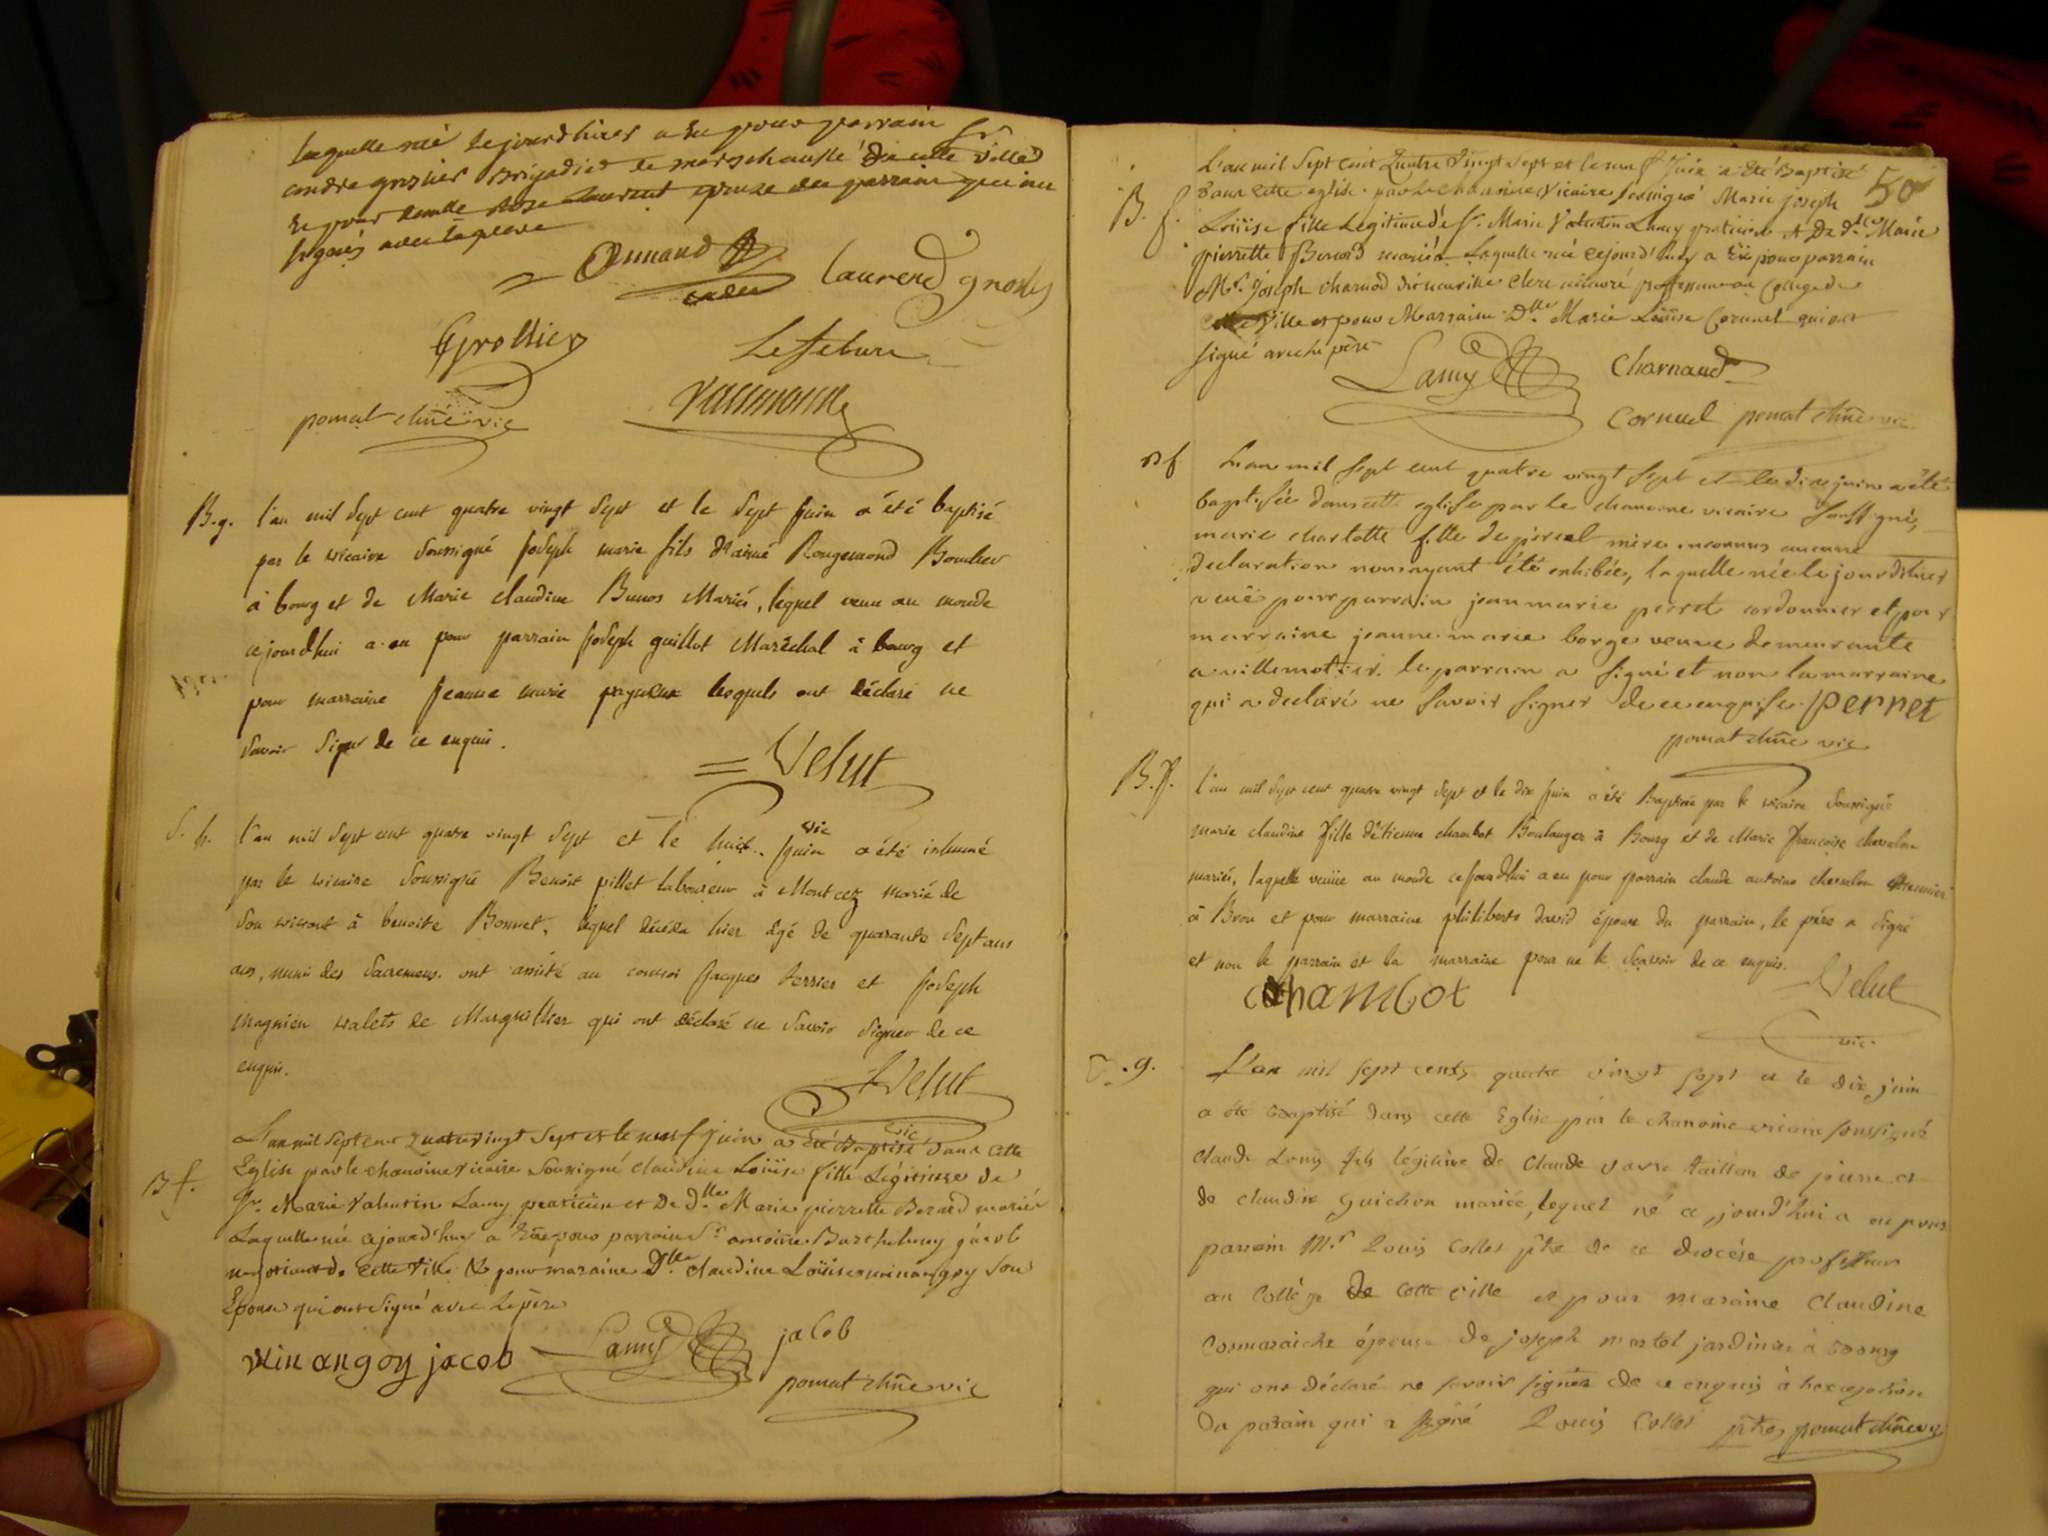 laquelle née lejourdhuer a eu pour parrain Sr
andre grosnier Brigadier de mareschaussé de cette ville
et pour Rose Laurent epouse du parrain qui ont
signés avec le pere
Laurend
Grollier
Lefebure
pomat chñe vic
B.g. l'an mil sept cent quatre vingt sept et le sept juin a été baptisé
par le vicaire soussigné joseph marie fils d'aimé Rougemond
à bourg et de Marie claudine Mariés, lequel venu au monde
cejourdhui a eu pour parrain joseph guillot Maréchal à bourg et
pour marraine jeanne marie lesquels ont déclaré ne
savoir signer de ce enquis.
Velut
vic
S.h. l'an mil sept cent quatre vingt sept et le huit juin a été inhumé
par le vicaire soussigné Benoit pillet laboureur à Montcez marié de
son vivant à benoite Bonnet, lequel décéda hier agé de quarante sept ans
ans, muni des sacremens. ont assisté au convoi jacques terrier et joseph
magnien valets de Marguillier qui ont déclaré ne savoir signer de ce
enquis.
Velut
vic
L'an mil sept cent quatre vingt sept et le neuf juin a été Baptisé dans cette
B f. Eglise par le chanoine vicaire soussigné claudine Loüise fille Légitime de
Sr. Marie Valentin Lamy praticien et De dlle. Marie pierrette Berard mariés
Laquelle née cejourd'huy a Eü pour parrain Sr antoine Barthelemy jacob
negotiant de cette ville & pour maraine Dlle claudine Loüise vuinangoy son
Epouse qui ont signé avec le père
vuinangoy jacob
Lamy
jacob
pomat chñe vic
50
L'an mil sept cent Quatre vingt sept et le neuf juin a été Baptisé
B. f. dans cette eglise par le chanoine vicaire soussigné Marie joseph
Loüise fille Légitime de Sr. Marie Valentin Lamy praticien et De dlle Marie
pierrette Berard mariés Laquelle née cejourd'huy a Eü pour parrain
Mr. Joseph charnod clerc professeur au College de
cette ville et pour Marraine Dlle Marie Loüise Cornuel qui ont
signé avec le père
Lamy
charnaud
cornuel
pomat chñe vic
B f L'an mil sept cent quatre vingt sept et le dix juin a été
baptisée dans cette eglise par le chanoine vicaire soussigné,
marie charlotte fille de père et mère inconnus aucune
declaration non ayant été exhibée, laquelle née le jourdhuer
a eüe pour parrain jean marie perret cordonnier et pour
marraine jeanne marie borge veuve demeurante
a villemotier. le parrain a signé et non la marraine
qui a declaré ne savoir signer de ce enquise. perret
pomat chñe vic
B.f. l'an mil sept cent quatre vingt sept et le dix juin a été Baptisée par le vicaire soussigné
marie claudine fille d'étienne chambot Boulanger à Bourg et de Marie françoise chevalon
mariés, laquelle venüe au monde cejourdhui a eu pour parrain claude antoine chevalon
à Brou et pour marraine philiberte david épouse du parrain, le père a signé
et non le parrain et la marraine pour ne le sçavoir de ce enquis.
chambot
Velut
vic.
.g. L'an mil sept cents quatre vingt sept et le dix juin
a été baptisé dans cette Eglise par le chanoine vicaire soussigné
claude Louis fils légitime de Claude tailleur de pierre et
de claudine Guichon mariés, lequel né ce jourd'hui a eu pour
parrain Mr Louis Collet ptre de ce diocèse professeur
au Collége de cette ville et pour maraine Claudine
épouse de joseph martel jardinier à Bourg
qui ont déclaré ne savoir signer de ce enquis à l'exception
du parain qui a signé Louis Collet ptre pomat chñe vic